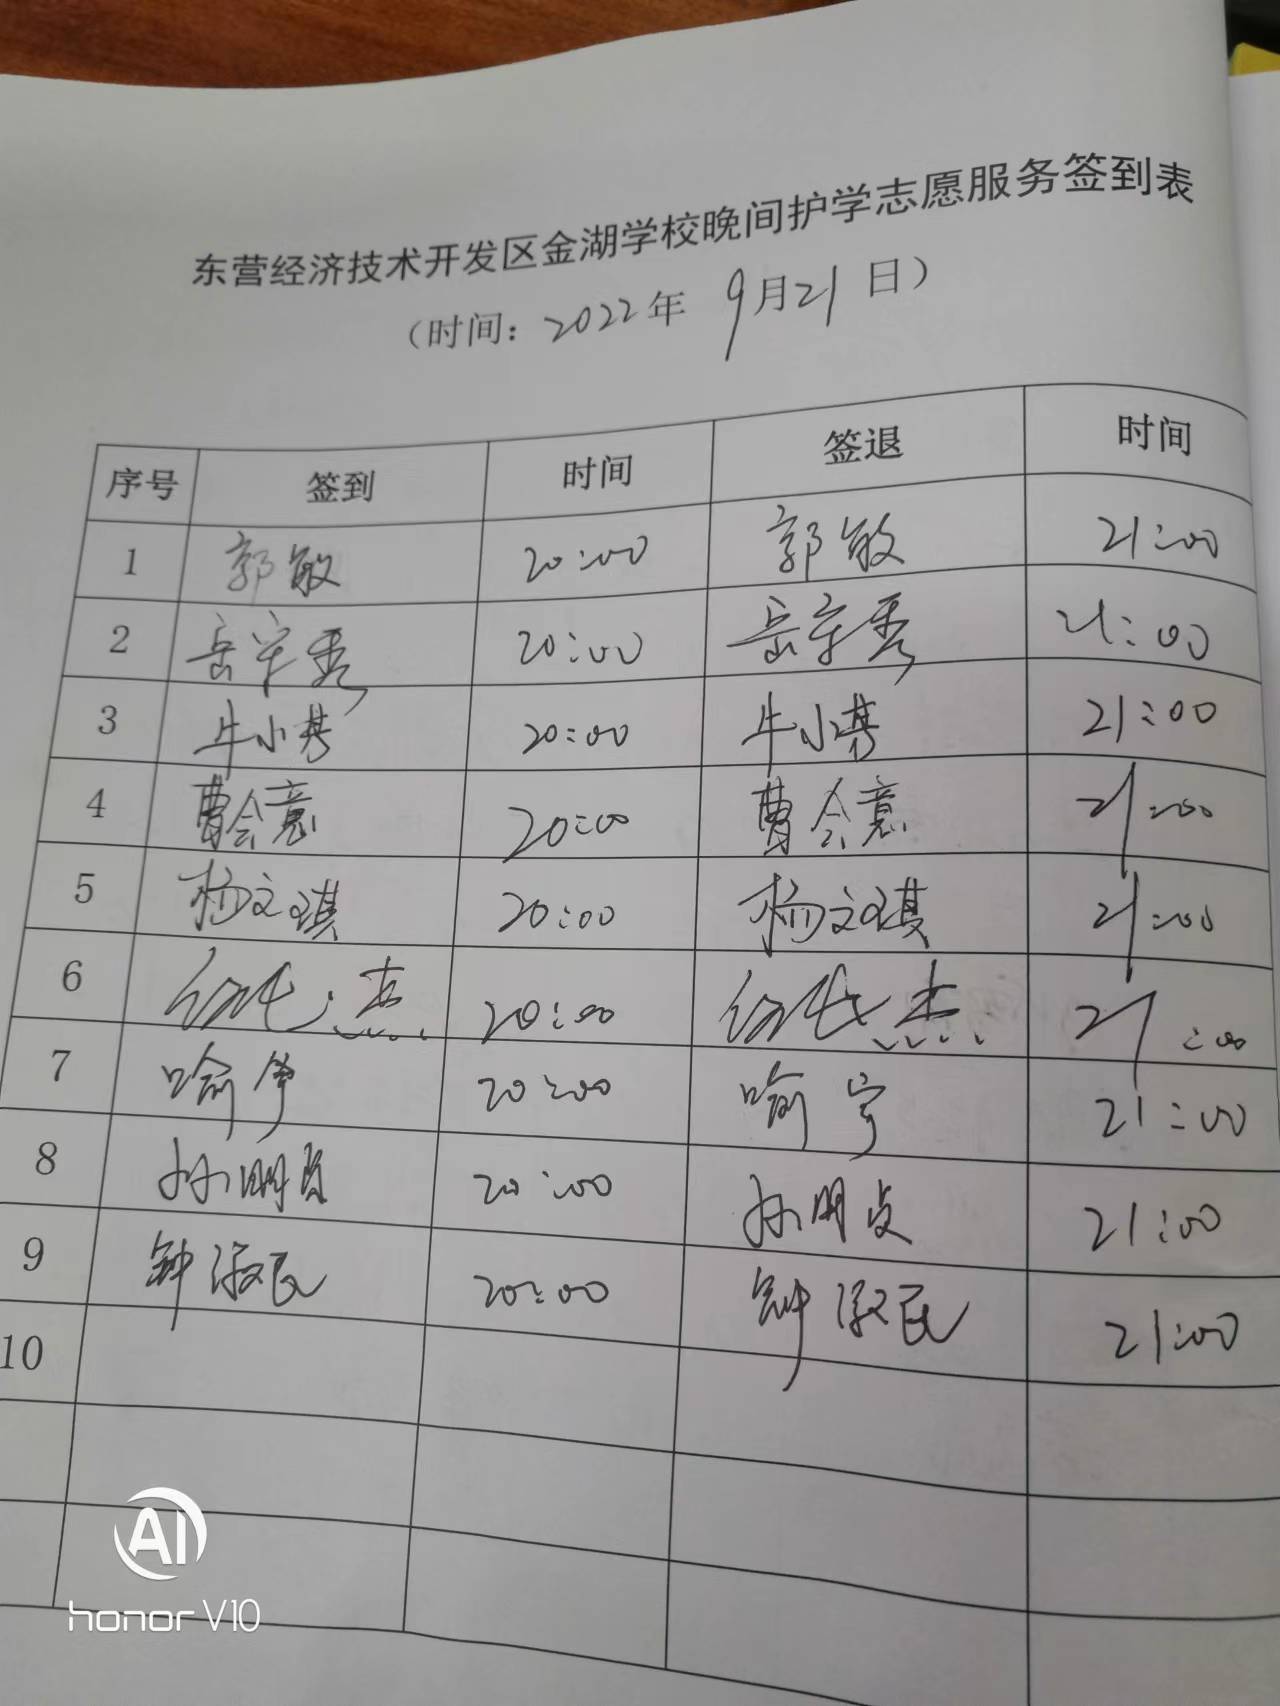 东营经济技术开发区金湖学校晚间护学志愿服务签到表
(时间：2022年 9月21日)
序号 签到 时间 签退 时间
1 郭敏 20:00 郭敏 21:00
2 20:00 21:00
3 牛小 20:00 牛小 21:00
4 曹会意 20:00 曹会意 21:00
5 杨文琪 20:00 杨文琪 21:00
6 杰 20:00 杰 21:00
7 喻 20:00 喻宇 21:00
8 孙明贞 20:00 孙明贞 21:00
9 钟淑民 20:00 钟淑民 21:00
10
AI
honor V10